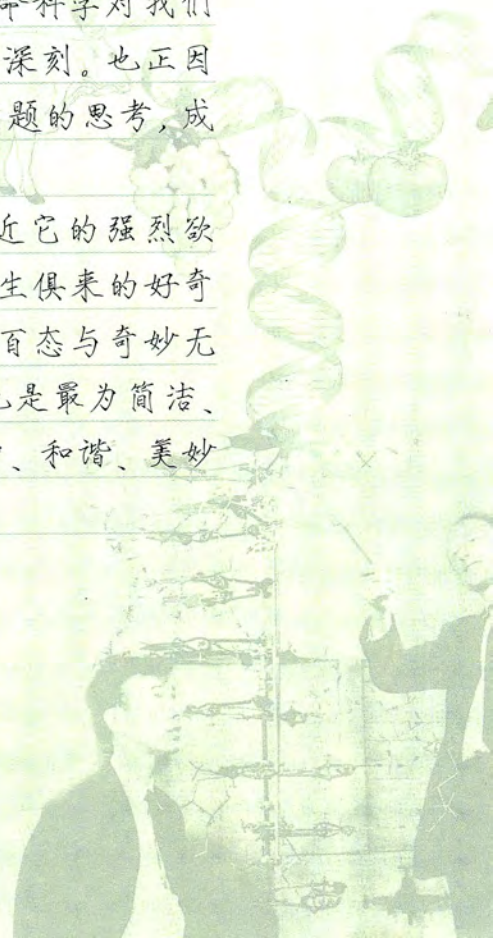 命科学对我们
深刻。也正因
题的思考,成
近它的强烈欲
生俱来的好奇
百态与奇妙无
也是最为简洁、
、和谐、美妙